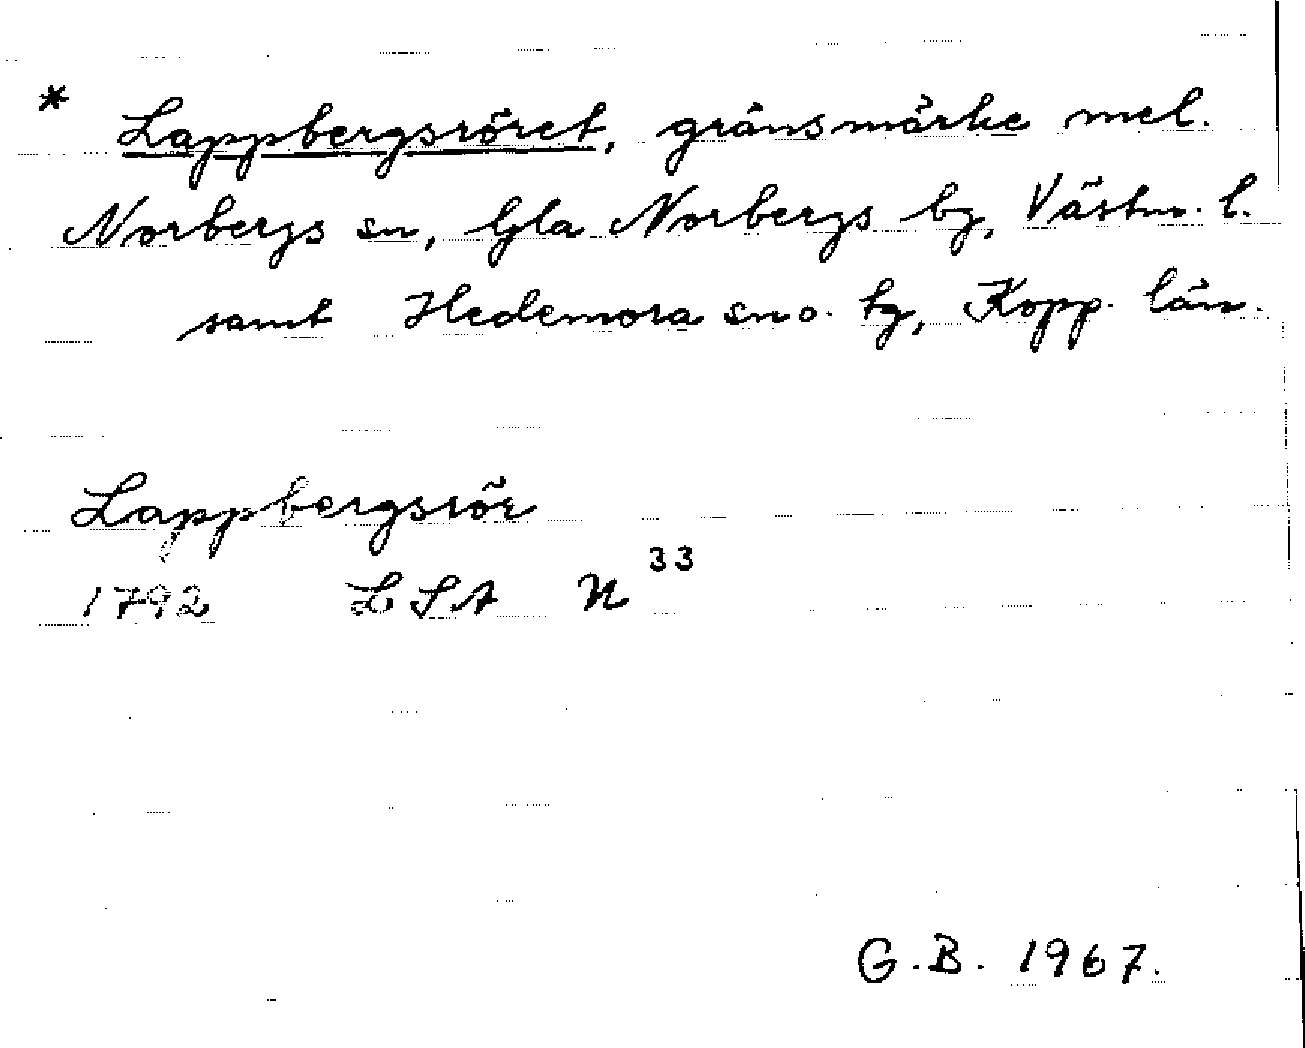 * Lappbergsröret, gränsmärke mel.
Norbergs sn, Gla Norbergs bg, Västm. l.
samt Hedemora sn o. tg, Kopp. län.
Lappbergsrör
1792 LSA N³³
G.B. 1967.